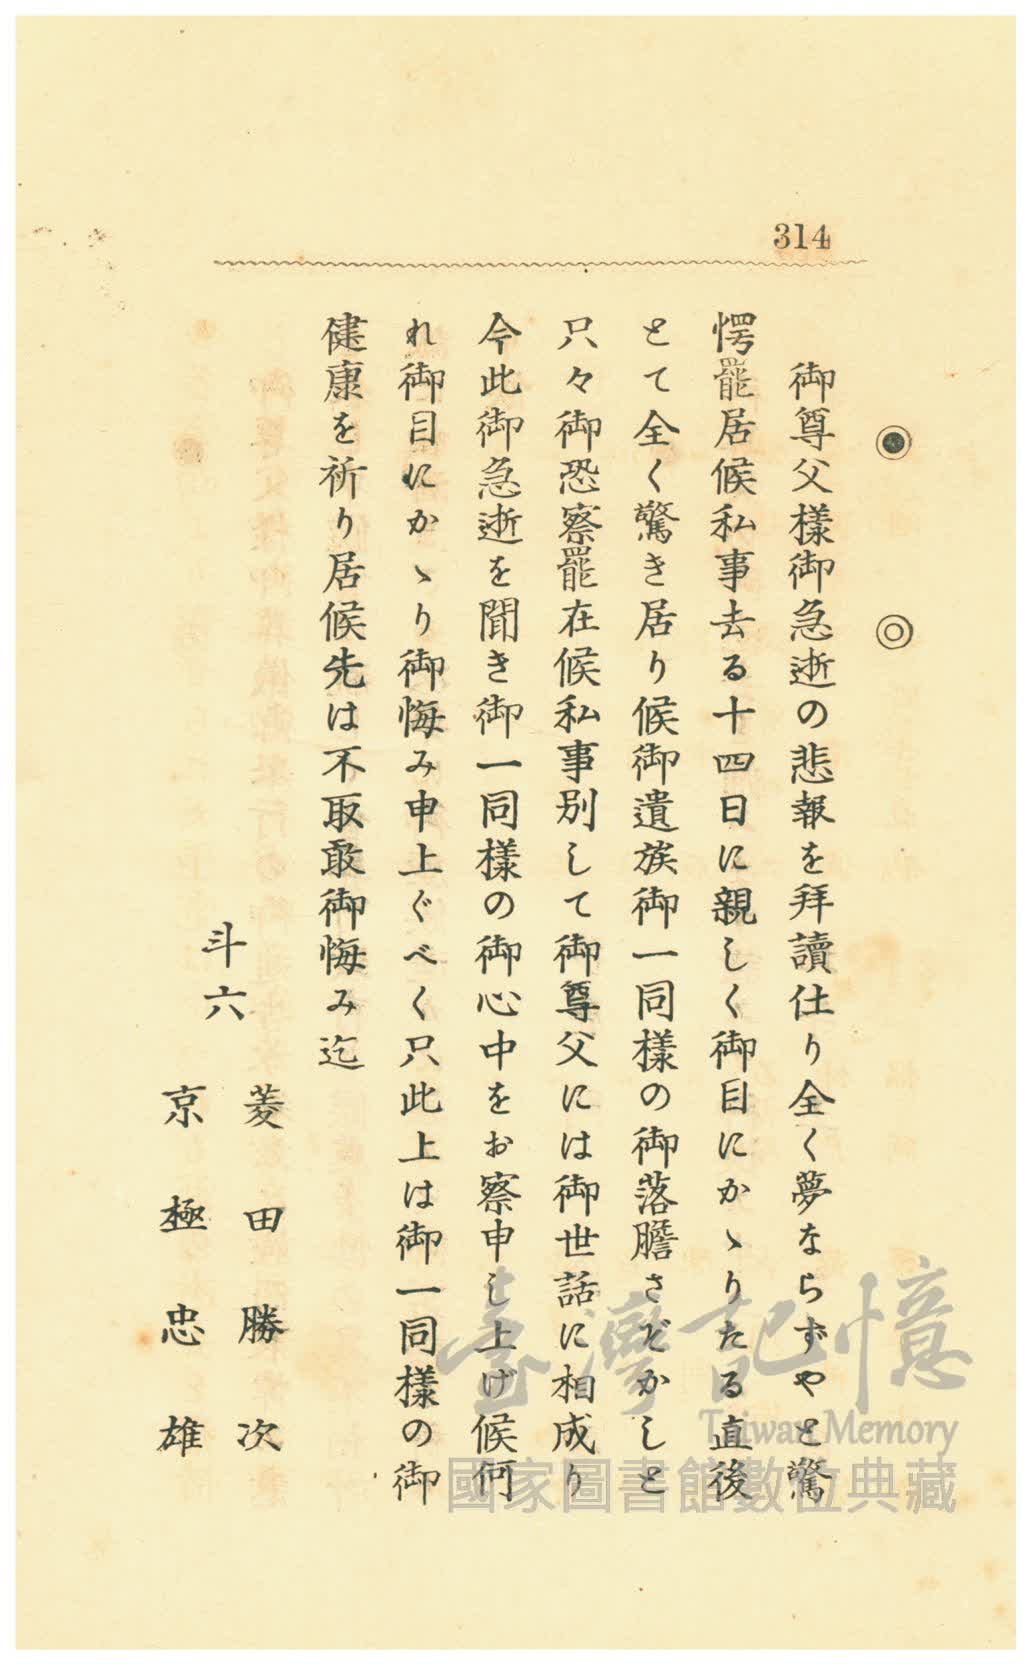 314
◉ ◎
御尊父樣御急逝の悲報を拜讀仕り全く夢ならずやと驚
愕罷居候私事去る十四日に親しく御目にかゝりたる直後
とて全く驚き居り候御遺族御一同樣の御落膽さぞかしと
只々御恐察罷在候私事別して御尊父には御世話に相成り
今此御急逝を聞き御一同樣の御心中をお察申し上げ候何
れ御目にかゝり御悔み申上ぐべく只此上は御一同樣の御
健康を祈り居候先は不取敢御悔み迄
斗六
菱田勝次
京極忠雄
臺灣記憶
Taiwan Memory
國家圖書館數位典藏